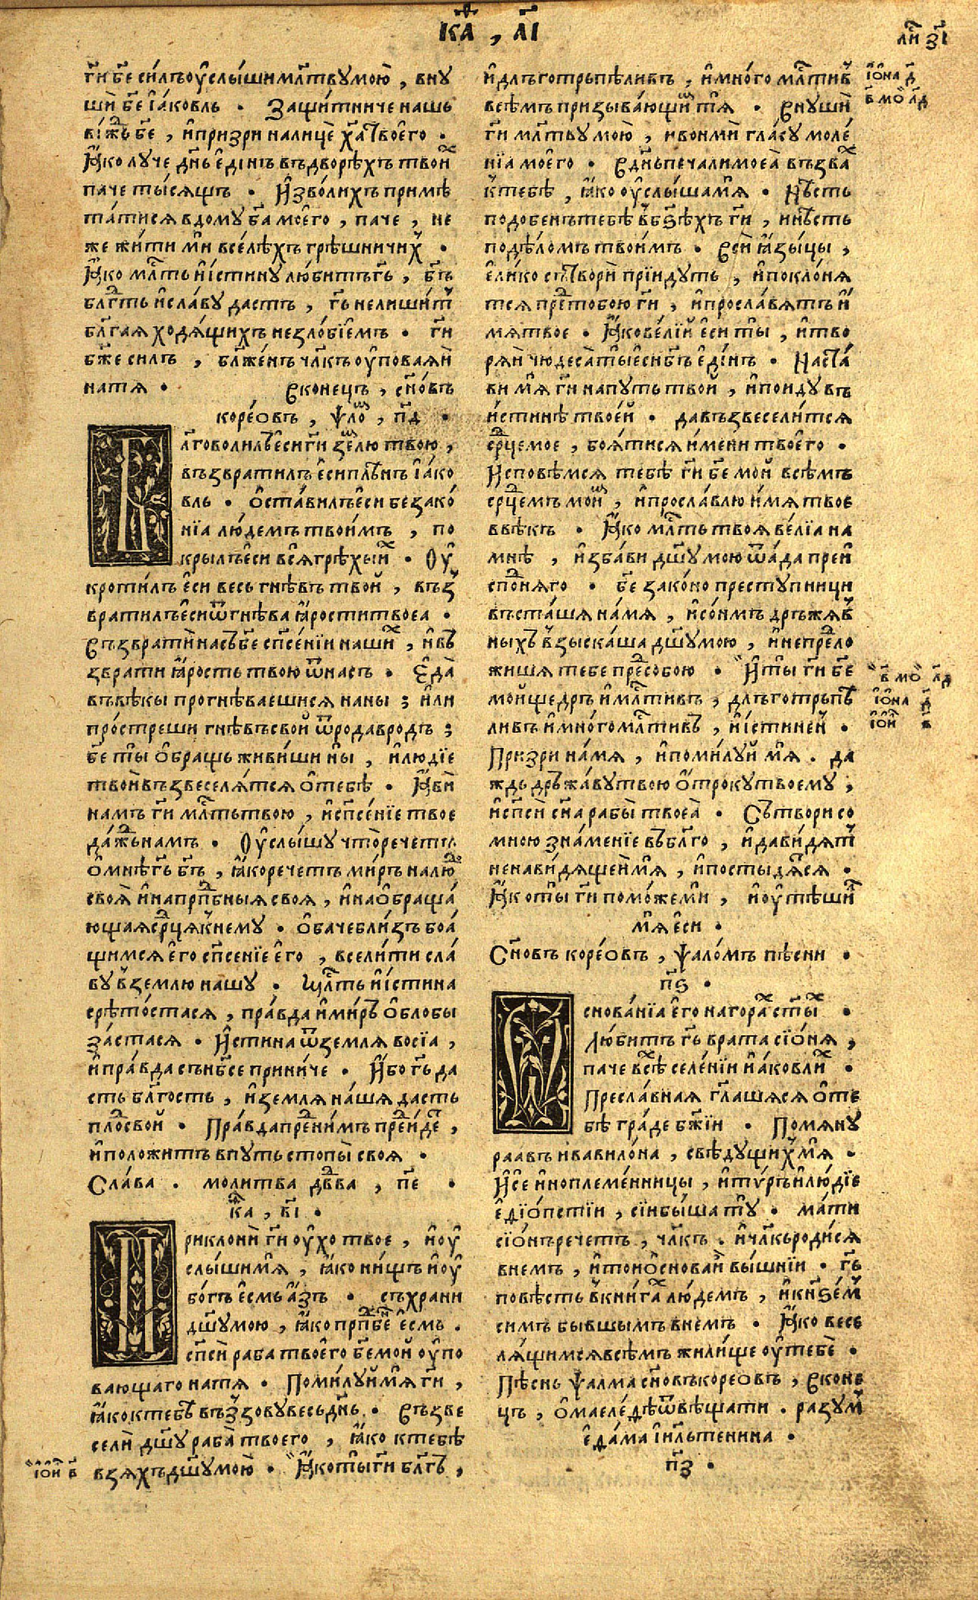 к҃а , л҃і
ли з҃і
г҃и бе҃ силъ оуслыши мл҃твꙋ мою , внꙋ
ши бе҃ іаковль . Защитниче нашь
віжь бе҃ , и призри на лице х҃а твоего .
Ꙗко лꙋче дн҃ь единъ въ дворѣхъ твои
паче тысящъ . Изволихъ примѣ
татися в домꙋ ба҃ моего , паче , не
же жити ми в селѣхъ грѣшничих .
Ꙗко мл҃ть и истинꙋ любитъ гь҃ , бъ҃
блг҃ть и славꙋ дастъ , гь҃ не лишит
благая ходящихъ незлобіемъ . г҃и
бж҃е силъ , блаженъ чл҃къ оуповаяи
на тя . В конець , сн҃овъ
кореовъ , ѱло , п҃д .
лговолилъ еси г҃и землю твою ,
възвратилъ еси плѣнъ іако
вль . оставилъ еси безако
нія людемъ твоимъ , по
крылъ еси вся грѣхы их . Оу
кротилъ еси весь гнѣвъ твой , въз
вратилъ еси ѿ гнѣва ярости твоеа .
Възврати насъ бе҃ сп҃сеніи наших , и въ
зврати ярость твою ѿ насъ . Еда
въ вѣкы прогнѣваешися на ны ; или
простреши гнѣвъ свой ѿ рода в родъ ;
бе҃ ты обращь живиши ны , и людіе
твои възвеселятся о тебѣ . Яви
намъ г҃и мл҃ть твою , и сп҃сеніе твое
дажь намъ . Оуслышꙋ что речетъ
о мнѣ гь҃ бъ҃ , яко речетъ миръ на люд
своя и на прп҃бныя своя , и на обраща
ющая срц҃я к немꙋ . Обаче близъ боа
щимся его сп҃сеніе его , вселити сла
вꙋ в землю нашꙋ . Мл҃ть и истина
срѣтостася , правда и миръ облобы
застася . Истина ѿ земля восіа ,
и правда съ нб҃се приниче . Ибо гь҃ да
сть блг҃ость , и земля наша дасть
плод свой . Правда пред нимъ преиде ,
и положитъ в пꙋть стопы своя .
Слава . молитва дв҃ва , п҃е .
к҃а , в҃і .
риклони г҃и оухо твое , и оу
слыши мя , яко нищъ и оу
богъ есмь азъ . съхрани
дш҃ꙋ мою , яко прп҃бенъ есмь .
сп҃си раба твоего бе҃ мой оупо
вающаго на тя . Помилꙋй мя г҃и ,
яко к тебѣ възовꙋ весь день . Възве
сели дш҃ꙋ раба твоего , яко к тебѣ
взяхъ дш҃ꙋ мою . Яко ты г҃и блг҃ъ ,
іои в
и длъготръпѣливъ , и много млтив
всѣмъ призывающим тя . Внꙋши
г҃и мл҃твꙋ мою , и вонми гласꙋ моле
нія моего . В день печали моеа възва
к тебѣ , яко оуслыша мя . Нѣсть
подобенъ тебѣ в бз҃ѣхъ г҃и , и нѣсть
по дѣломъ твоимъ . Вси языцы ,
елико сътвори пріидꙋть , и поклоня
тся пред тобою г҃и , и прославятъ и
мя твое . Яко велій еси ты , и тво
ряй чюдеса ты еси бъ҃ единъ . Наста
ви мя г҃и на пꙋть твой , и поидꙋ въ
истинѣ твоей . да възвеселится
срд҃це мое , боятися имени твоего .
Исповѣмся тебѣ г҃и бе҃ мой всѣмъ
срд҃цемъ моим , и прославлю имя твое
в вѣкъ . Яко мл҃ть твоя веліа на
мнѣ , и избави дш҃ꙋ мою ѿ ада преи
сподняго . бе҃ законо престꙋпници
въсташя на мя , и сонмъ дръжяв
ныхъ взыскаша дш҃ꙋ мою , и не предло
жишя тебе пред собою . И ты г҃и бе҃
мой щедръ и млтивъ , длъготръпѣ
ливъ и много млтивъ , и истинен .
Призри на мя , и помилꙋй мя . да
ждь дръжавꙋ твою отрокꙋ твоемꙋ ,
и сп҃си сн҃а рабы твоеа . Сътвори со
мною знаменіе въ благо , и да видят
ненавидящеи мя , и постыдятся .
Яко ты г҃и поможе ми , и оутѣши
мя еси .
Сн҃овъ кореовъ , ѱаломъ пѣсни .
п҃ѕ .
снованіа его на горах сты .
Любитъ гь҃ врата сіоня ,
паче всѣх селеніи іаковли .
Преславная гл҃ашяся о те
бѣ граде бж҃іи . Помянꙋ
раавъ и вавилона , свѣдꙋщих мя .
И се иноплеменницы , и тѵръ и людіе
едіопстіи , сіи бышa тꙋ . мати
сіонъ речетъ , чл҃къ . и чл҃къ родися
в немъ , и той основа и вышніи . гь҃
повѣсть в книгах людемъ , и кнѕем
симъ бывшымъ в немъ . Яко весе
лящимся всѣмъ жилище оу тебе .
Пѣснь ѱалма сн҃овъ кореовъ , В коне
цъ , о маелефѣ ѿвѣщати . разꙋм
едама іильтенина .
п҃з .
іона д
в мо л҃д
в мо л҃д
іона д
іоил в